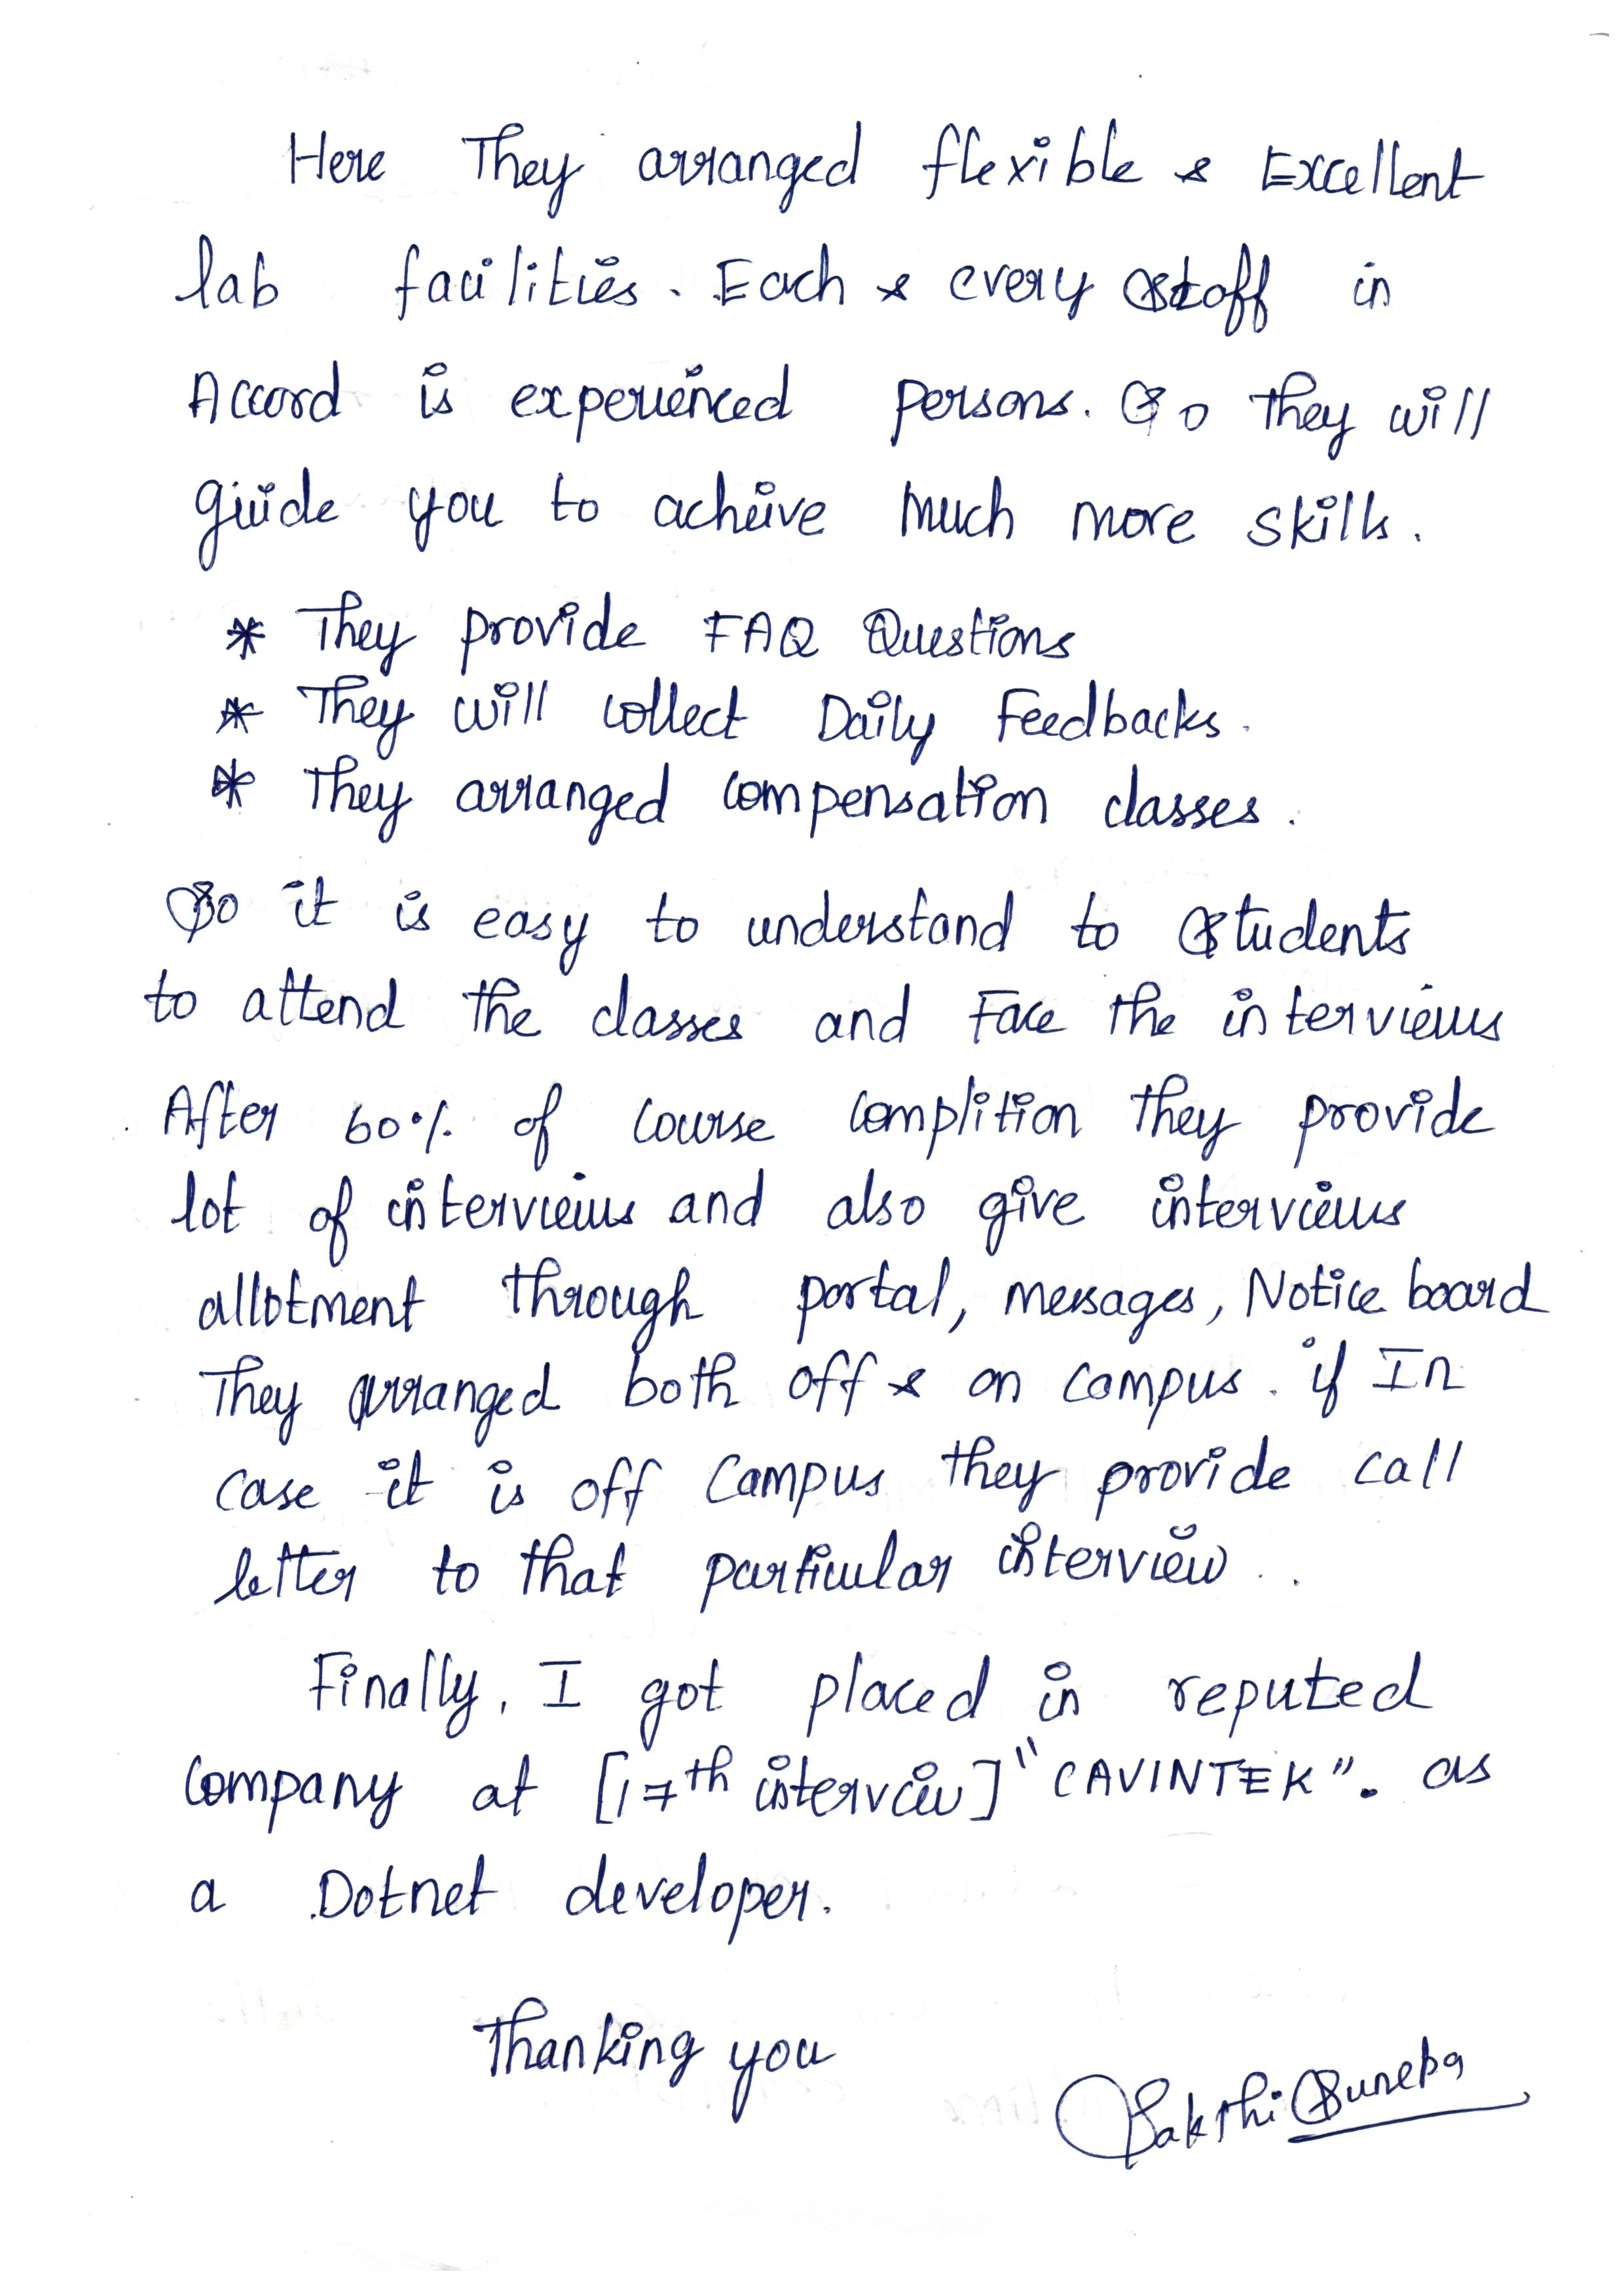 Here They arranged flexible & Excellent
lab facilities. Each & every staff in
Accord is experienced persons. So they will
guide you to acheive much more skills.
* They provide FAQ Questions
* They will collect Daily Feedbacks.
* They arranged compensation classes.
So it is easy to understand to students
to attend the classes and Face the interviews
After 60% of course complition they provide
lot of interviews and also give interviews
allotment through portal, messages, Notice board
They arranged both off & on campus. if In
case it is off campus they provide call
letter to that particular interview.
Finally, I got placed in reputed
company at [17th interview] "CAVINTEK". as
a Dotnet developer.
Thanking you
Sakthi Suneka